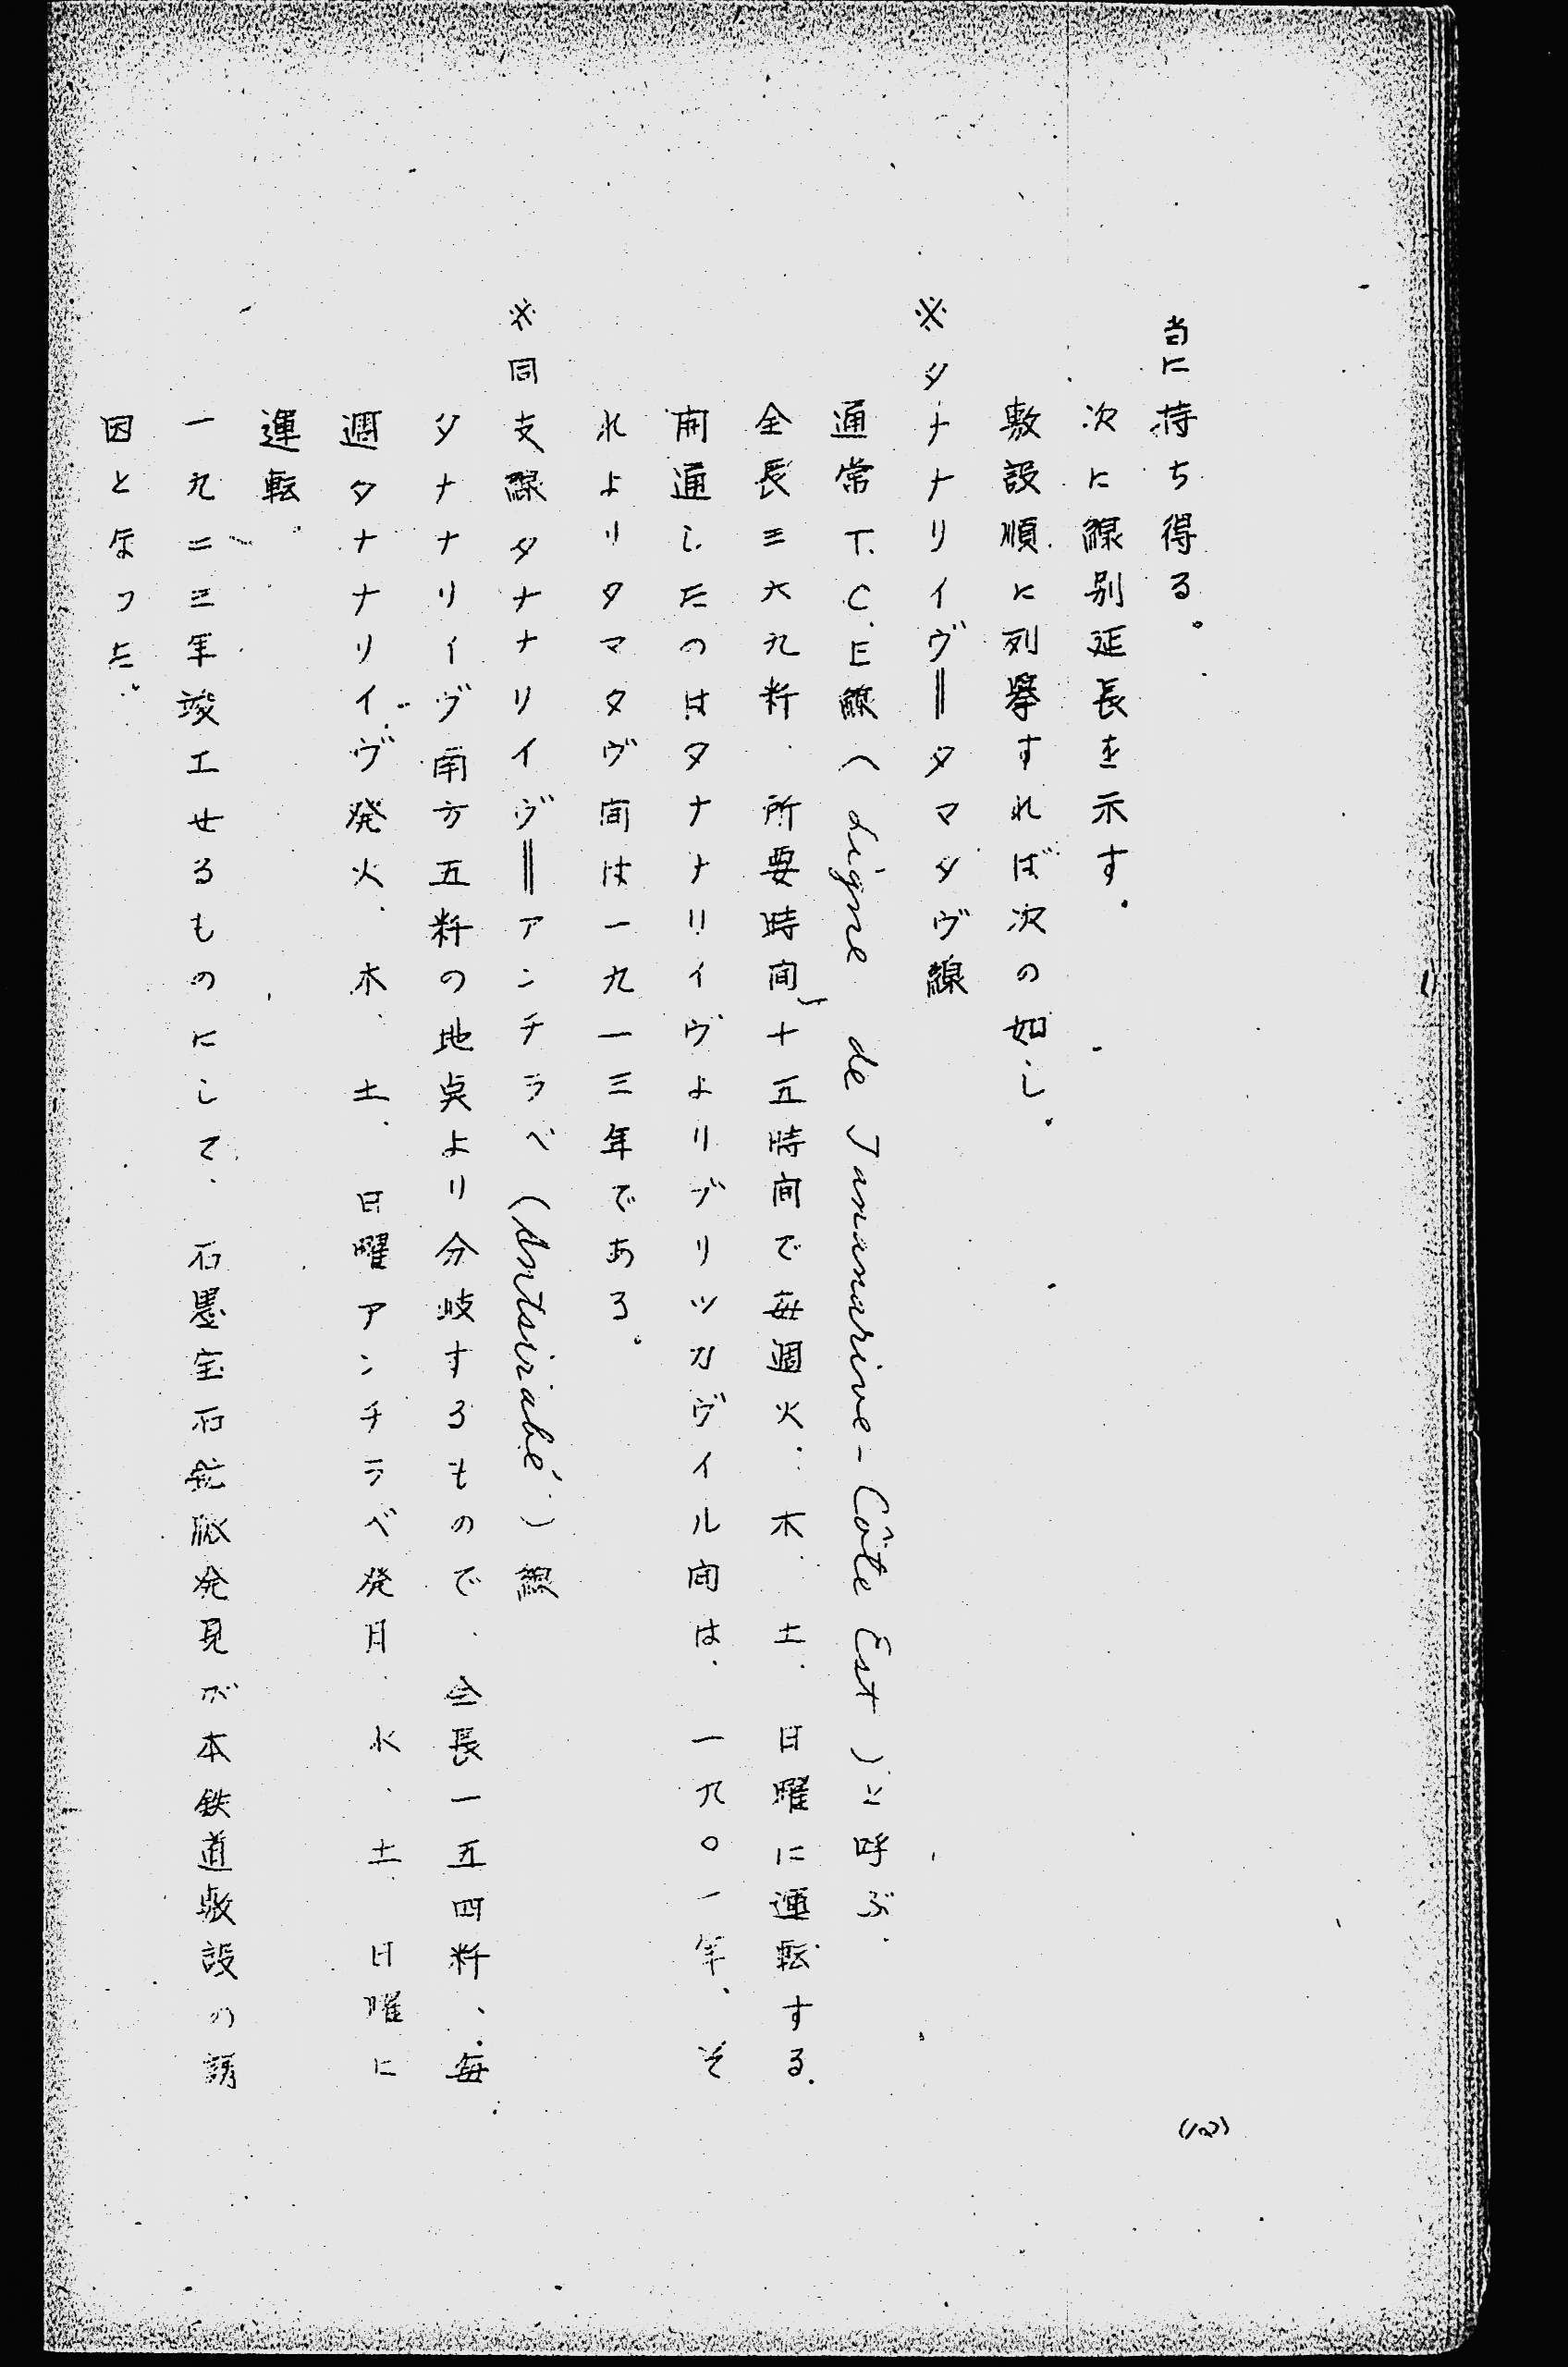 当に持ち得る。
次に線別延長を示す。
敷設順に列挙すれば次の如し。
※タナナリイヴ＝タマタヴ線
通常T.C.E線（Ligne de Tananarive-Côte Est）と呼ぶ．
全長三六九粁．所要時間十五時間で毎週火．木．土．日曜に運転する．
開通したのはタナナリイヴよりブリツカヴイル間は．一九〇一年、そ
れよりタマタヴ間は一九一三年である。
※同支線タナナリイヴ＝アンチラベ（Antsirabé）線
タナナリイヴ南方五粁の地点より分岐するもので．全長一五四粁、毎
週タナナリイヴ発火、木、土、日曜アンチラベ発月、水、土、日曜に
運転。
一九二三年竣工せるものにして、石墨宝石鉱脈発見が本鉄道敷設の誘
因となつた。
(12)